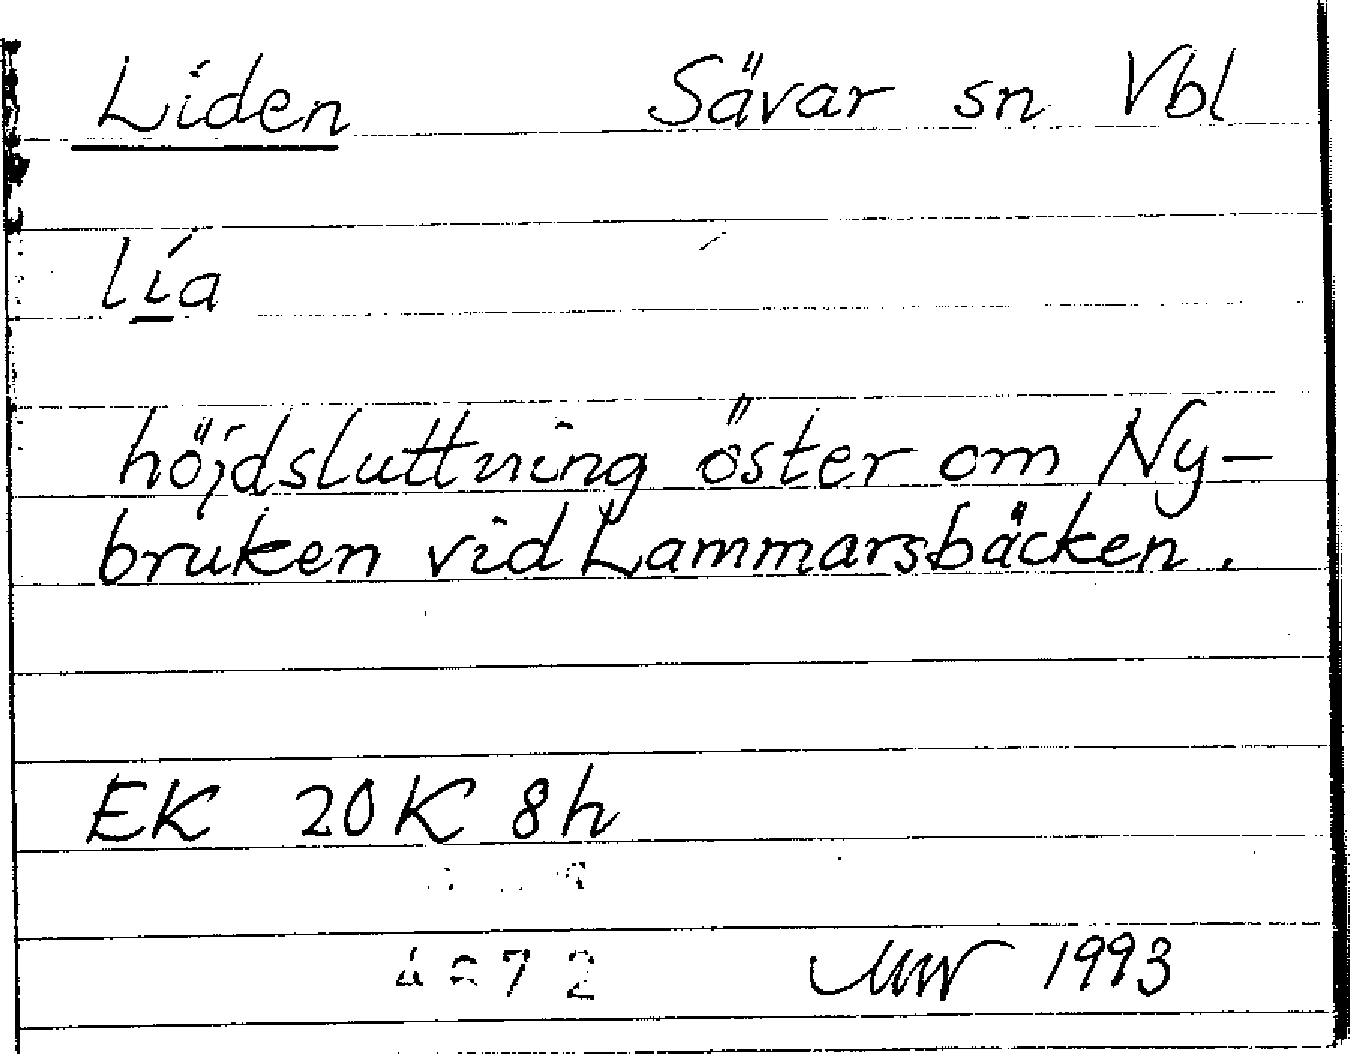 Liden Sävar sn Vbl
lía
höjdsluttning öster om Ny-
bruken vid Lammarsbäcken.
EK 20K 8h
1993